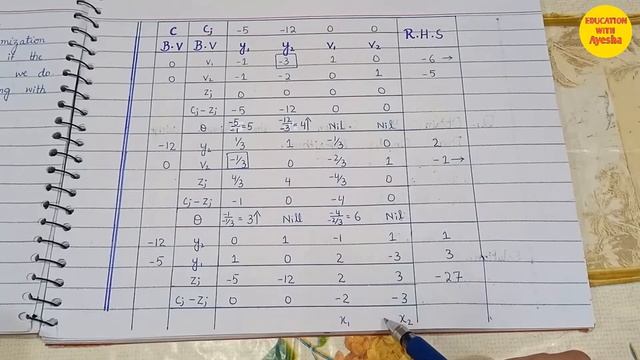 EDUCATION
WITH
Ayesha
mization
if the
we do.
ng with
C Cj -5 -12 0 0 R.H.S
B.V B.V y₁ y₂ v₁ v₂
0 v₁ -1 -3 1 0 -6 →
0 v₂ -1 -2 0 1 -5
Zj 0 0 0 0
Cj-Zj -5 -12 0 0
θ -5/-1=5 -12/-3=4↑ Nil Nil
-12 y₂ 1/3 1 -1/3 0 2
0 v₂ -1/3 0 -2/3 1 -1→
Zj 4/3 4 -4/3 0
Cj-Zj -1 0 -4 0
θ -1/-1/3=3↑ Nill -4/-2/3=6 Nil
-12 y₂ 0 1 -1 1 1
-5 y₁ 1 0 2 -3 3
Zj -5 -12 2 3 -27
Cj-Zj 0 0 -2 -3
x₁ x₂